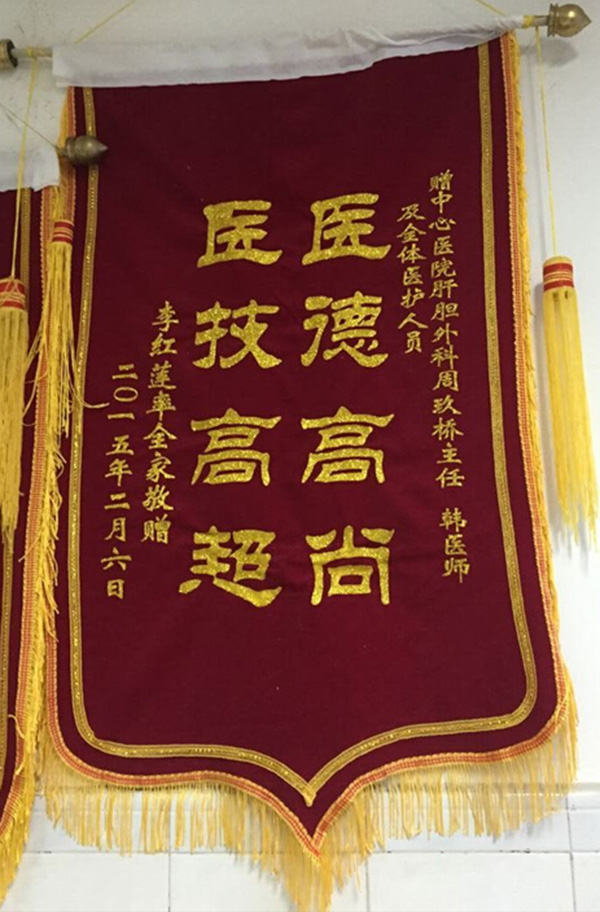 赠中心医院肝胆外科周玖桥主任 韩医师
及全体医护人员
医德高尚
医技高超
李红莲率全家敬赠
二〇一五年二月六日